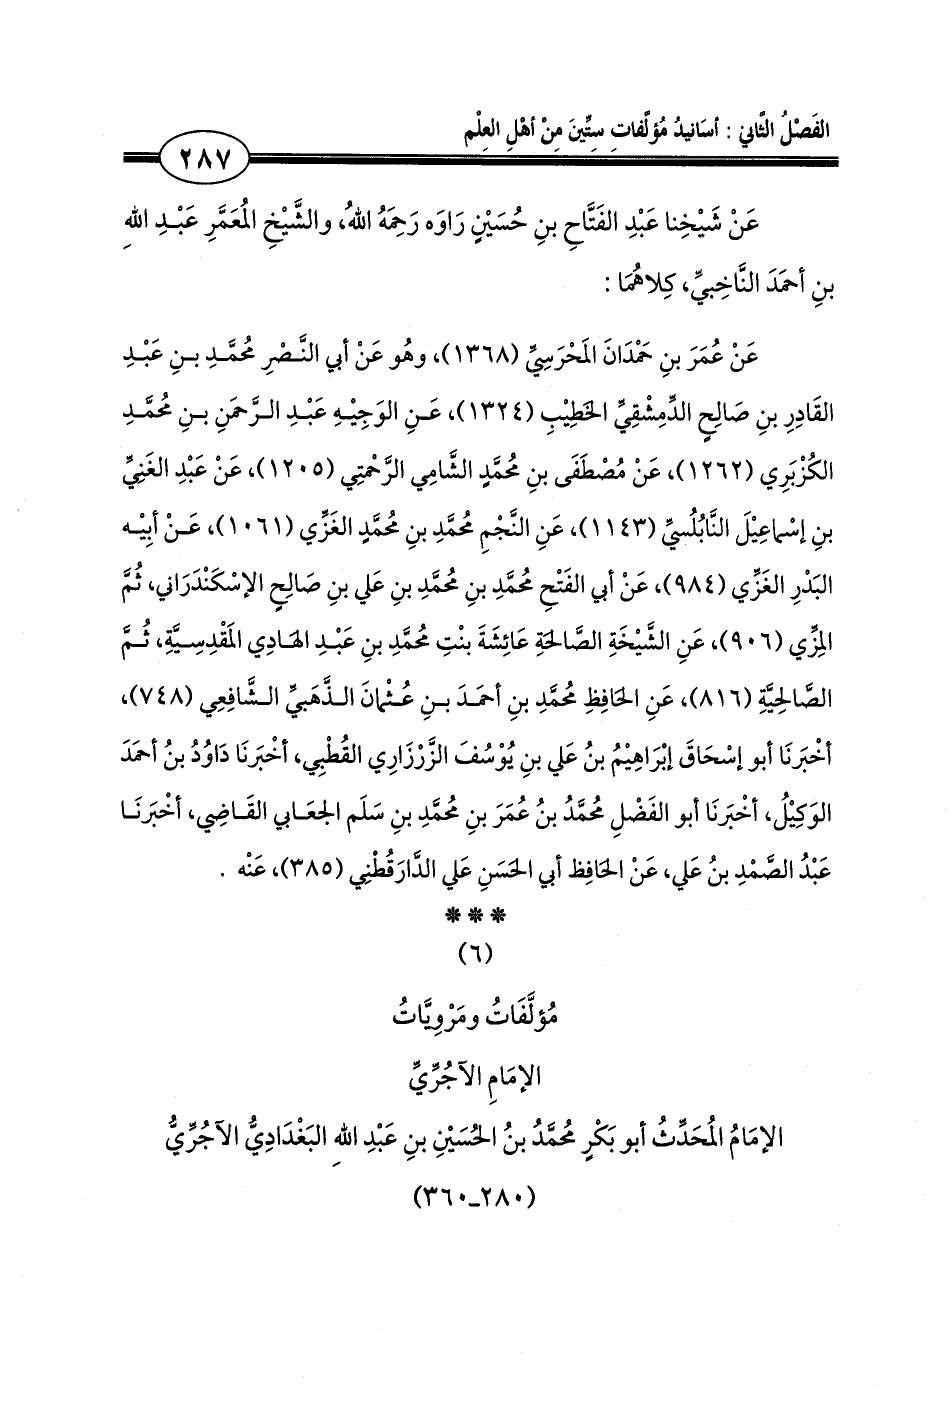 الفَصْلُ الثَّاني : أسَانيدُ مُؤلَّفاتِ سِتِّينَ مِنْ أهْلِ العِلْمِ
٢٨٧
عَنْ شَيْخِنا عَبْدِ الفَتَّاحِ بنِ حُسَيْنٍ رَاوَه رَحِمَهُ اللهُ، والشَّيْخِ المُعَمَّرِ عَبْدِ اللهِ
بنِ أحمَدَ النَّاخِبيِّ، كِلاهُمَا :
عَنْ عُمَرَ بنِ حَمْدَانَ المَحْرَسِيِّ (١٣٦٨)، وهُو عَنْ أبي النَّصْرِ مُحمَّدِ بنِ عَبْدِ
القَادِرِ بنِ صَالِحٍ الدِّمِشْقِيِّ الخَطِيْبِ (١٣٢٤)، عَنِ الوَجِيْهِ عَبْدِ الرَّحمَنِ بنِ مُحمَّدِ
الكُزْبَرِي (١٢٦٢)، عَنْ مُصْطَفَى بنِ مُحمَّدٍ الشَّامِي الرَّحْمَتِي (١٢٠٥)، عَنْ عَبْدِ الغَنِيِّ
بنِ إسْماعِيْلَ النَّابُلُسيِّ (١١٤٣)، عَنِ النَّجْمِ مُحمَّدِ بنِ مُحمَّدٍ الغَزِّي (١٠٦١)، عَنْ أبِيْه
البَدْرِ الغَزِّي (٩٨٤)، عَنْ أبي الفَتْحِ مُحمَّدِ بنِ مُحمَّدِ بنِ عَلي بنِ صَالِحٍ الإسْكَنْدَرَاني، ثُمَّ
المِزِّي (٩٠٦)، عَنِ الشَّيْخَةِ الصَّالحَةِ عَائِشَةَ بنْتِ مُحمَّدِ بنِ عَبْدِ الهَادِي المَقْدِسِيَّةِ، ثُمَّ
الصَّالحِيَّةِ (٨١٦)، عَنِ الحَافِظِ مُحمَّدِ بنِ أحمَدَ بنِ عُثْمانَ الذَّهَبيِّ الشَّافِعِي (٧٤٨)،
أخْبَرنَا أبو إسْحَاقَ إبْرَاهِيْمُ بنُ عَلي بنِ يُوْسُفَ الزَّرْزَارِي القُطْبِي، أخْبَرنَا دَاوُدُ بنُ أحمَدَ
الوَكِيْلُ، أخْبَرنَا أبو الفَضْلِ مُحمَّدُ بنُ عُمَرَ بنِ مُحمَّدِ بنِ سَلَم الجعَابي القَاضِي، أخْبَرنَا
عَبْدُ الصَّمْدِ بنُ عَلي، عَنْ الحَافِظ أبي الحَسَنِ عَلي الدَّارَقُطْنِي (٣٨٥)، عَنْه .
***
(٦)
مُؤلَّفَاتُ ومَرْوِيَّاتُ
الإمَامِ الآجُرِّيِّ
الإمَامُ المُحَدِّثُ أبو بَكْرٍ مُحمَّدُ بنُ الحُسَيْنِ بنِ عَبْدِ اللهِ البَغْدَادِيُّ الآجُرِّيُّ
(٢٨٠ـ٣٦٠)